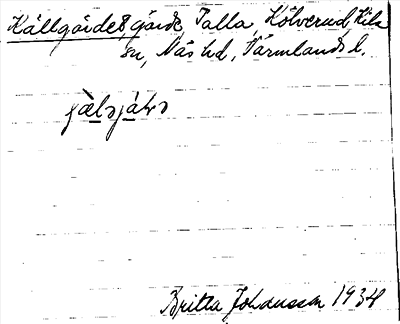 Källgärdet gärde, Talla, Kölverud, Kila
sn, Näs hd, Värmlands l.
Britta Johansson 1934